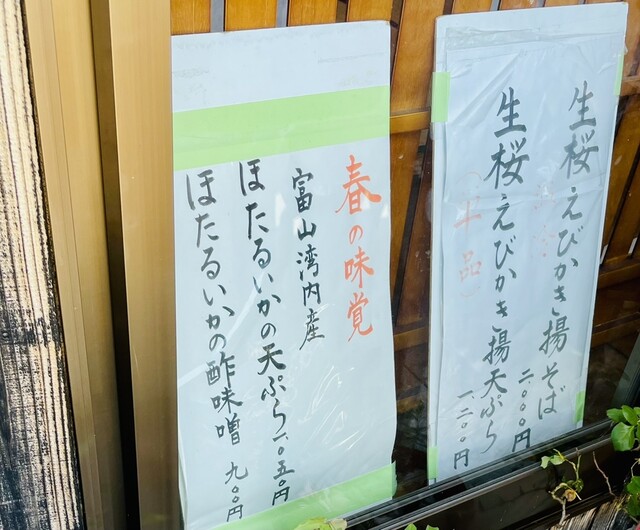 生桜えびかき揚そば 二、〇〇〇円
生桜えびかき揚天ぷら 一、二〇〇円
春の味覚
富山湾内産
ほたるいかの天ぷら 一、〇五〇円
ほたるいかの酢味噌 九〇〇円